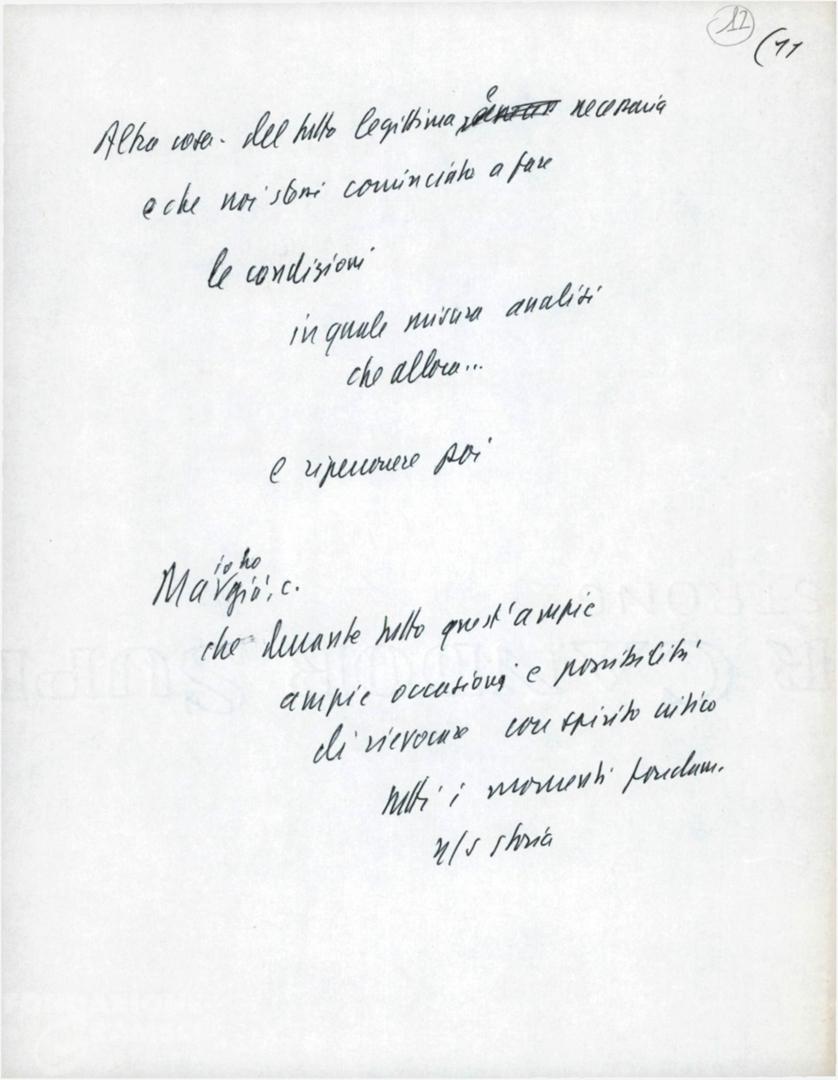 12
(11
Altra cosa - del tutto legittima, e necessaria
e che noi stessi cominciato a fare
le condizioni
in quale misura analisi
che allora...
e ripercorrere poi
io ho
Ma già, c.
che durante tutto quest'ampie
ampie occasioni e possibilità
di rievocare con spirito critico
tutti i momenti fondam.
n/s storia